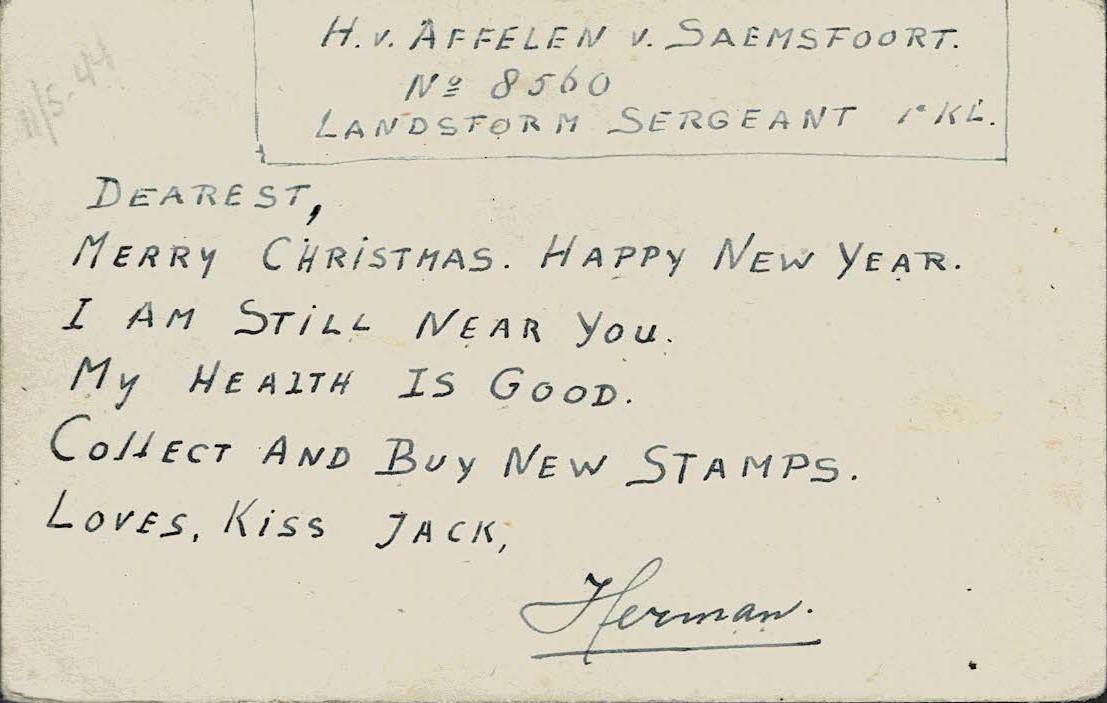 H. v. AFFELEN v. SAEMSFOORT.
Nº 8560
LANDSTORM SERGEANT 1e KL.
11/5-44
DEAREST,
MERRY CHRISTMAS. HAPPY NEW YEAR.
I AM STILL NEAR YOU.
MY HEALTH IS GOOD.
COLLECT AND BUY NEW STAMPS.
LOVES, KISS JACK,
Herman.